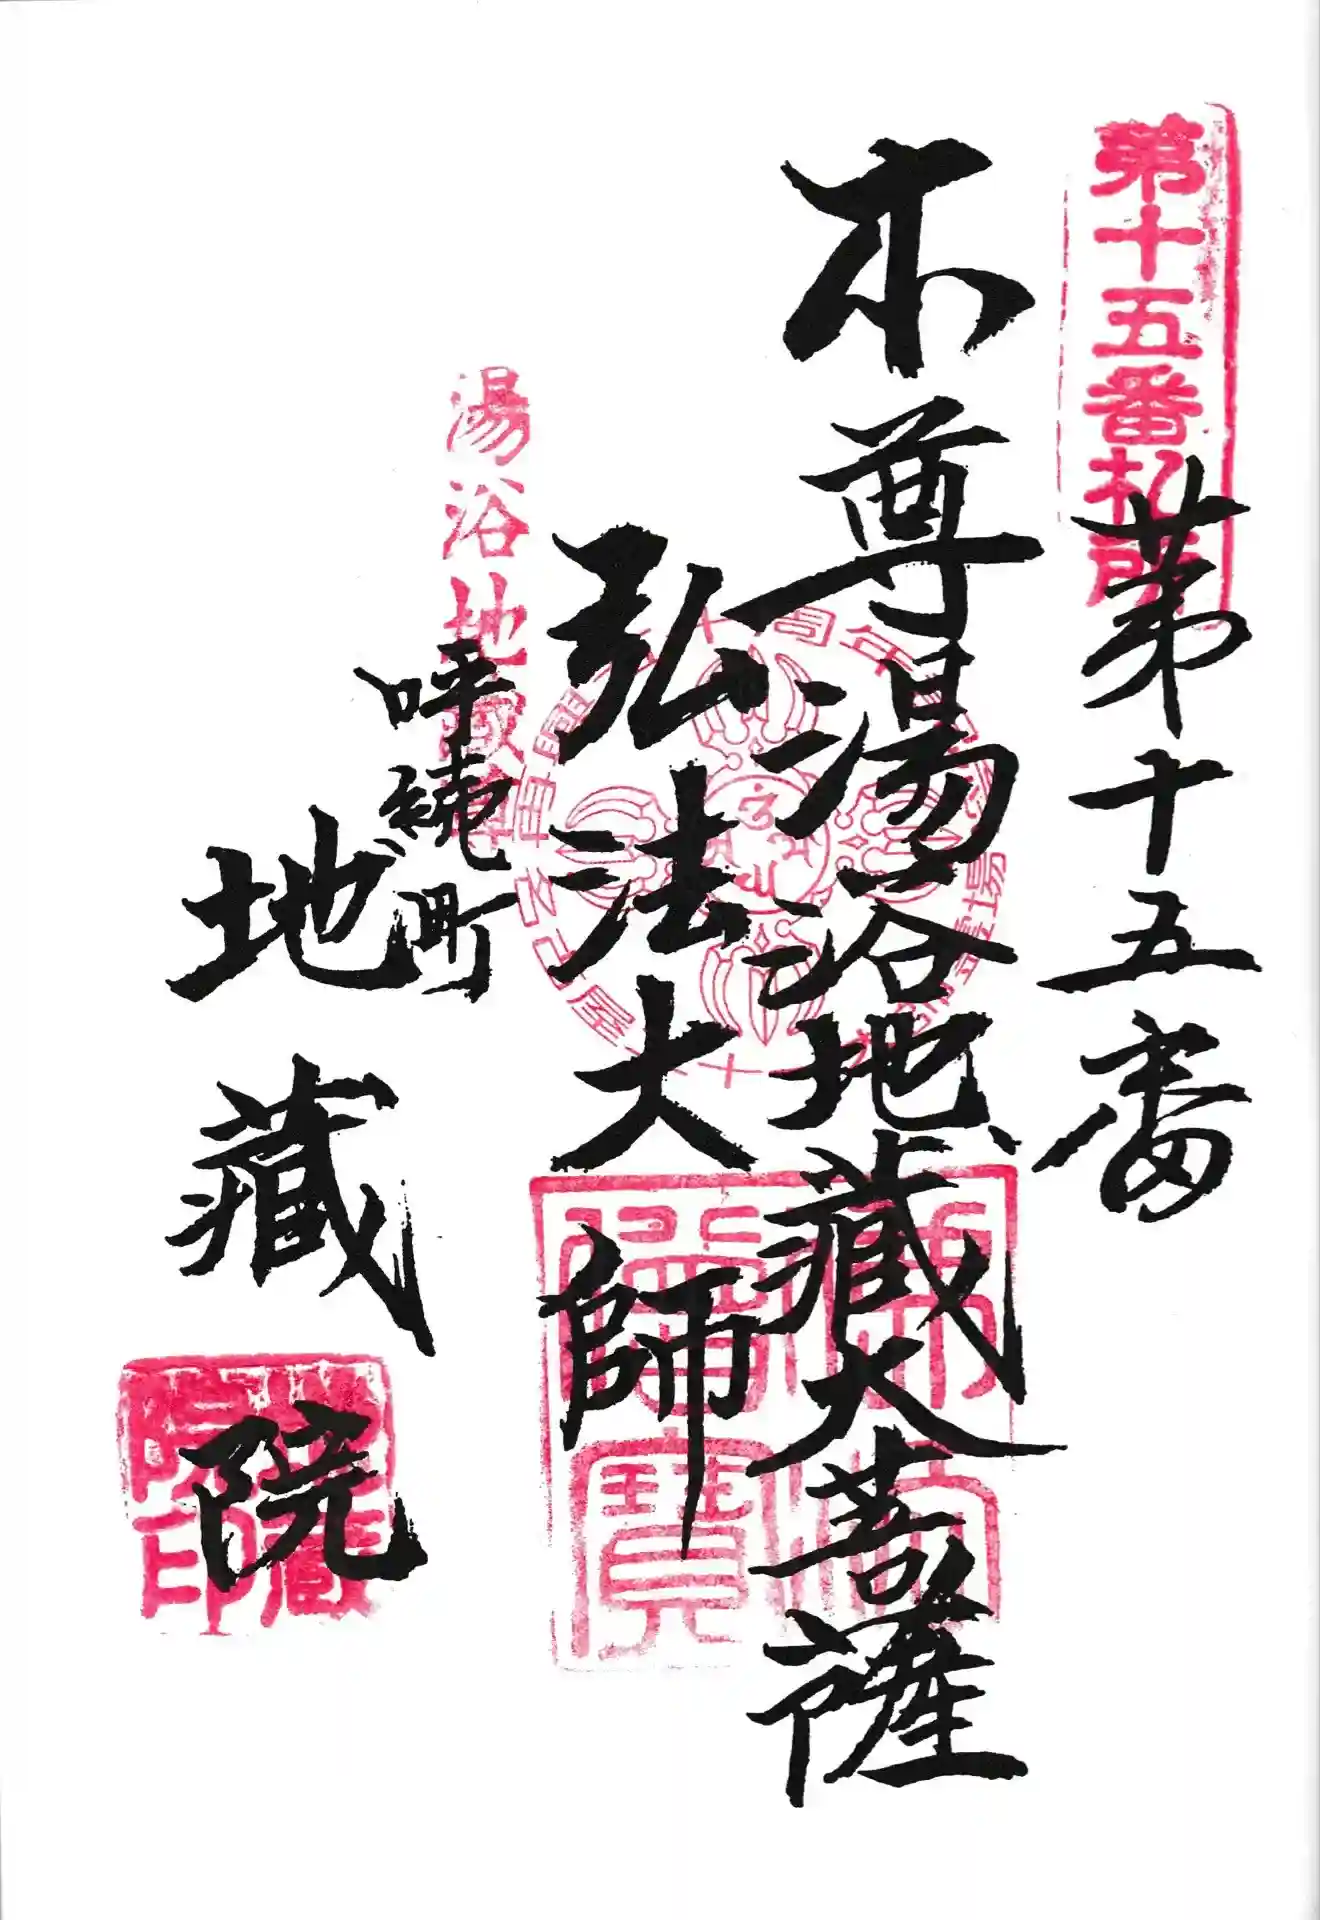 第十五番札所
第十五番
本尊湯浴地蔵大菩薩
弘法大師
湯浴地蔵尊
呼続町
地蔵院
佛法僧寶
地蔵院印